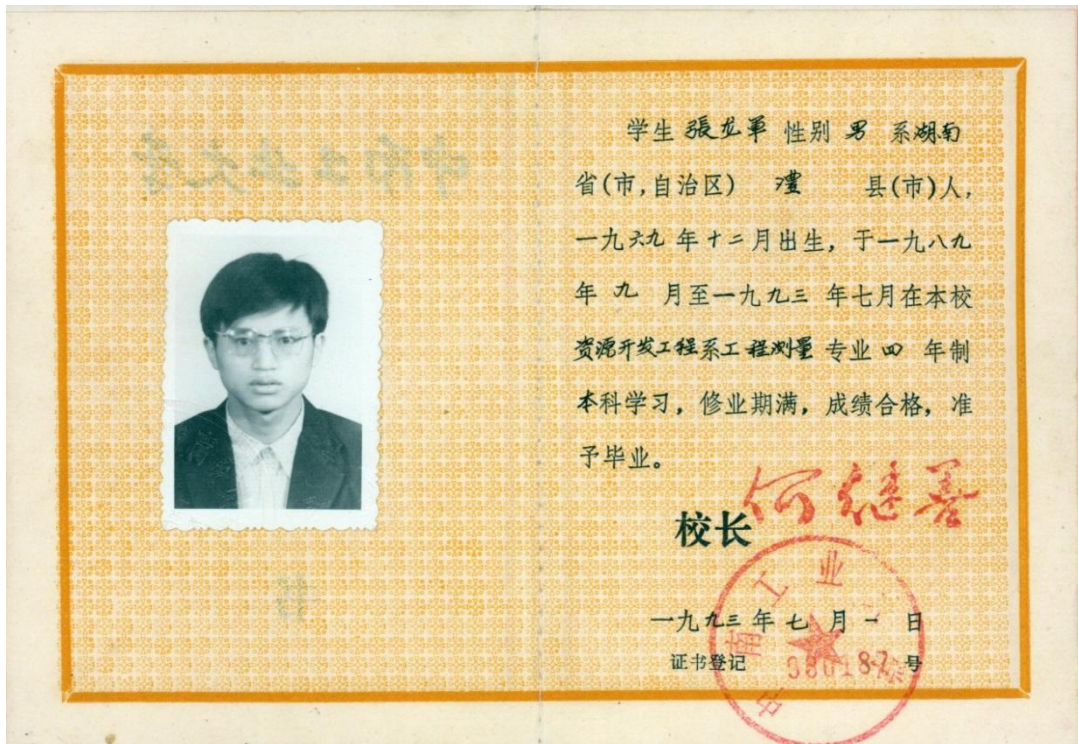 学生 張龙军 性别 男 系湖南
省(市,自治区) 澧 县(市)人,
一九六九年十二月出生,于一九八九
年 九 月至一九九三 年七月在本校
资源开发工程系工程测量 专业 四 年制
本科学习,修业期满,成绩合格,准
予毕业。
校长 何继善
一九九三年 七 月 一 日
证书登记 号
中南工业